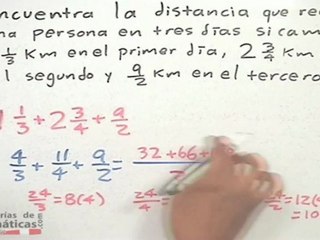 ncuentra la distancia que re
na persona en tres días si cam
1/3 Km en el primer día, 2 3/4 Km
l segundo y 9/2 Km en el tercero
1 1/3 + 2 3/4 + 9/2
4/3 + 11/4 + 9/2 = 32+66+
24/3 = 8(4) 24/4 = 24/2 = 12(
= 10
rías de
máticas